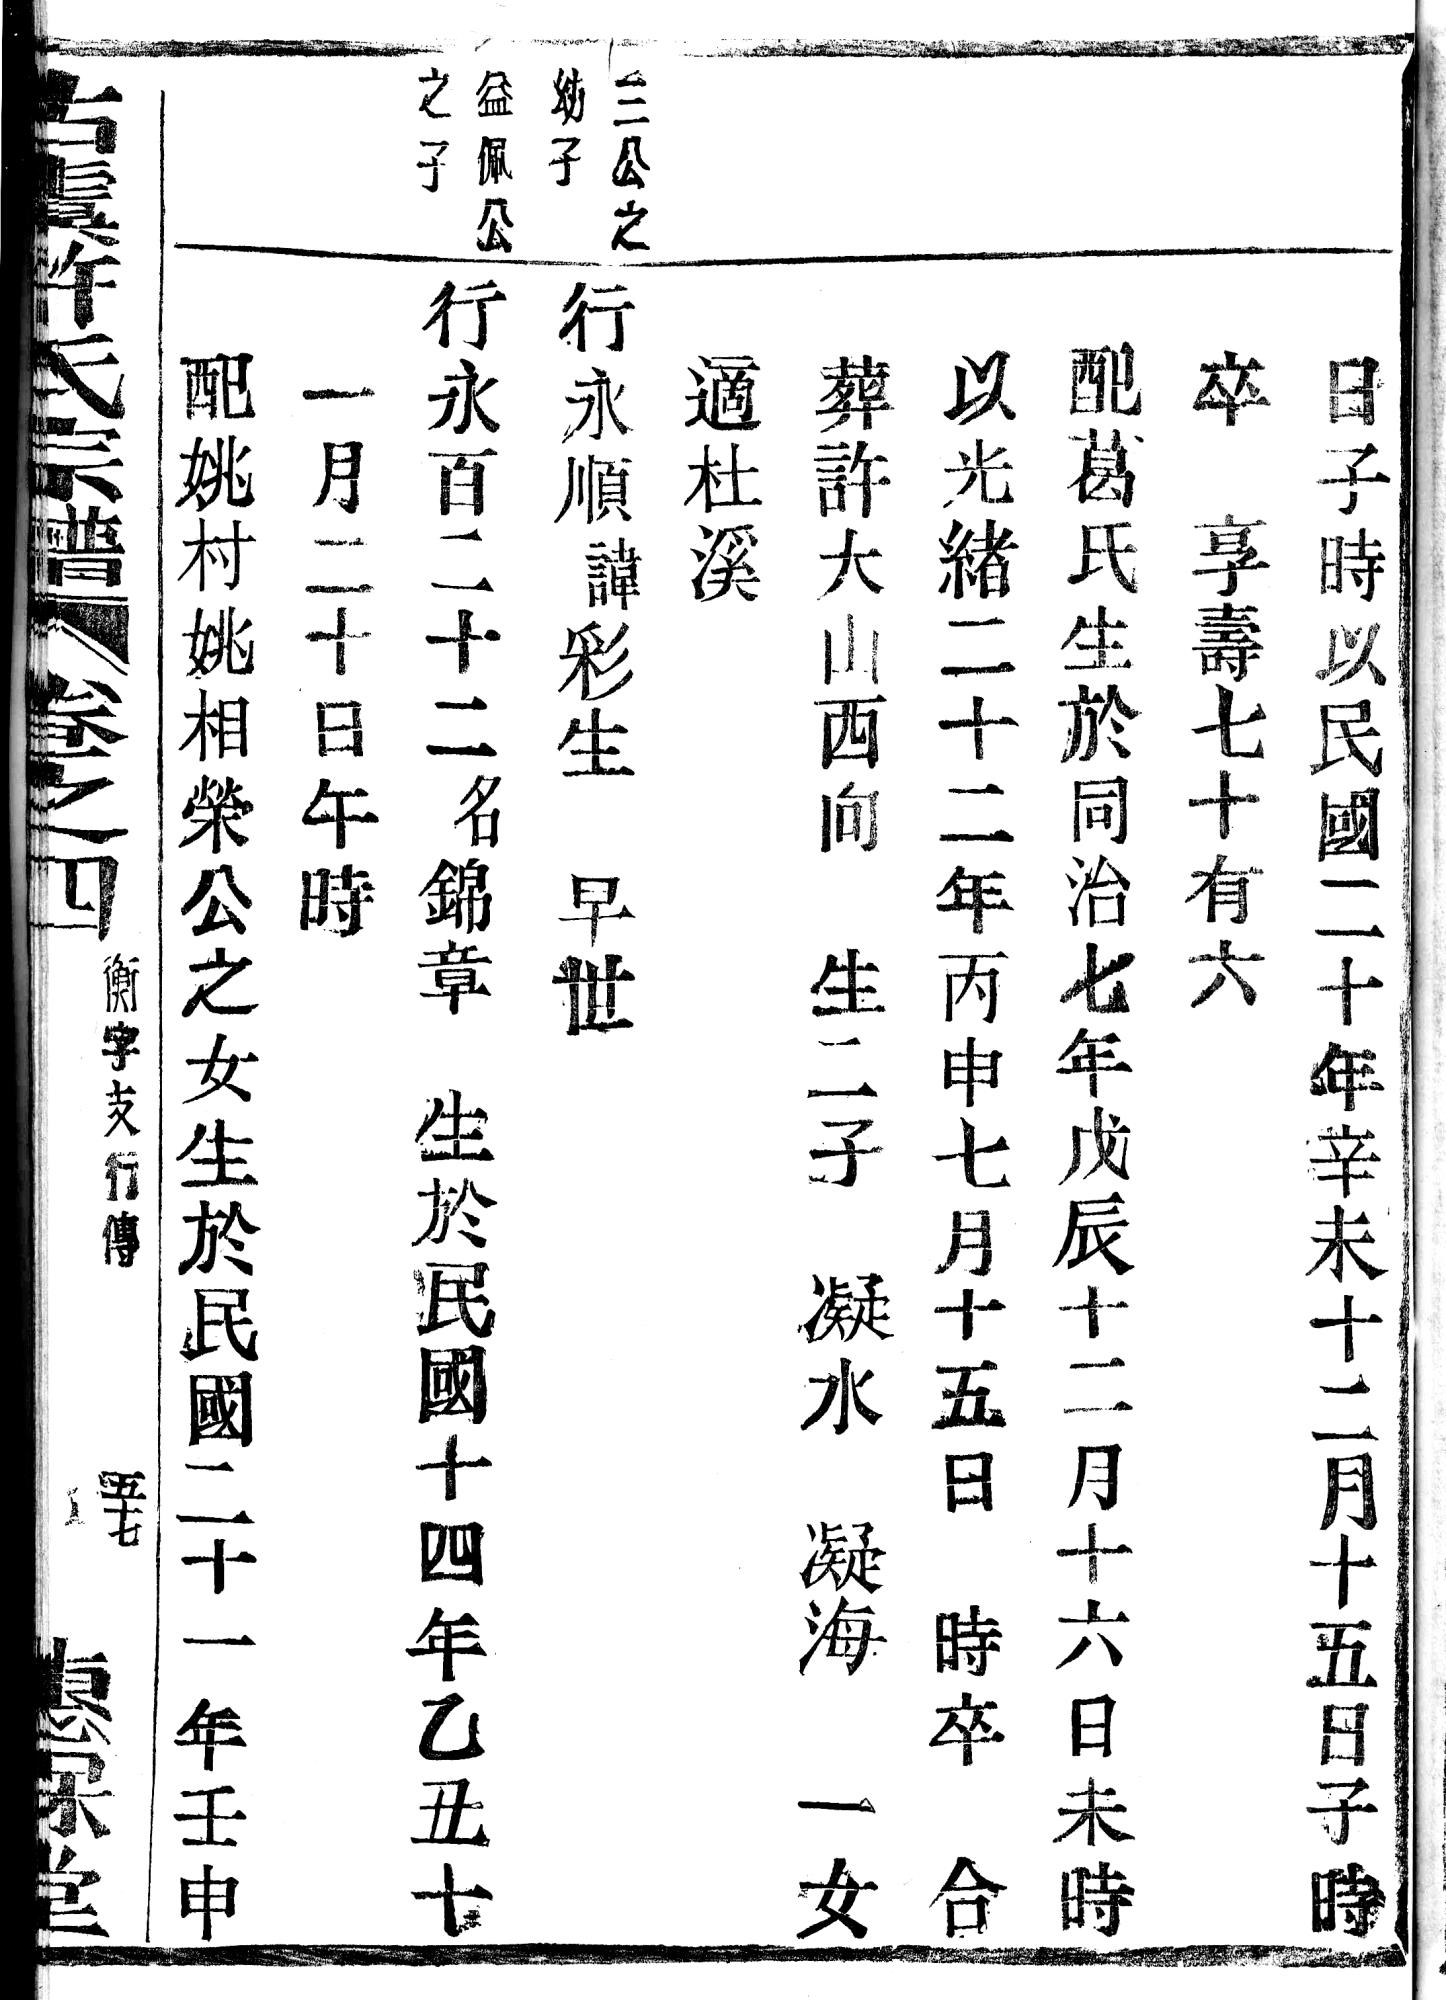 日子時以民國二十年辛未十二月十五日子時
卒　享壽七十有六
配葛氏生於同治七年戊辰十二月十六日未時
以光緒二十二年丙申七月十五日　時卒　合
葬許大山西向　生二子　凝水　凝海　一女
適杜溪
三公之
幼子
行永順諱彩生　早世
益佩公
之子
行永百二十二名錦章　生於民國十四年乙丑十
一月二十日午時
配姚村姚相榮公之女生於民國二十一年壬申
古虞許氏宗譜　卷之四　衡字支行傳　五七　惠保堂